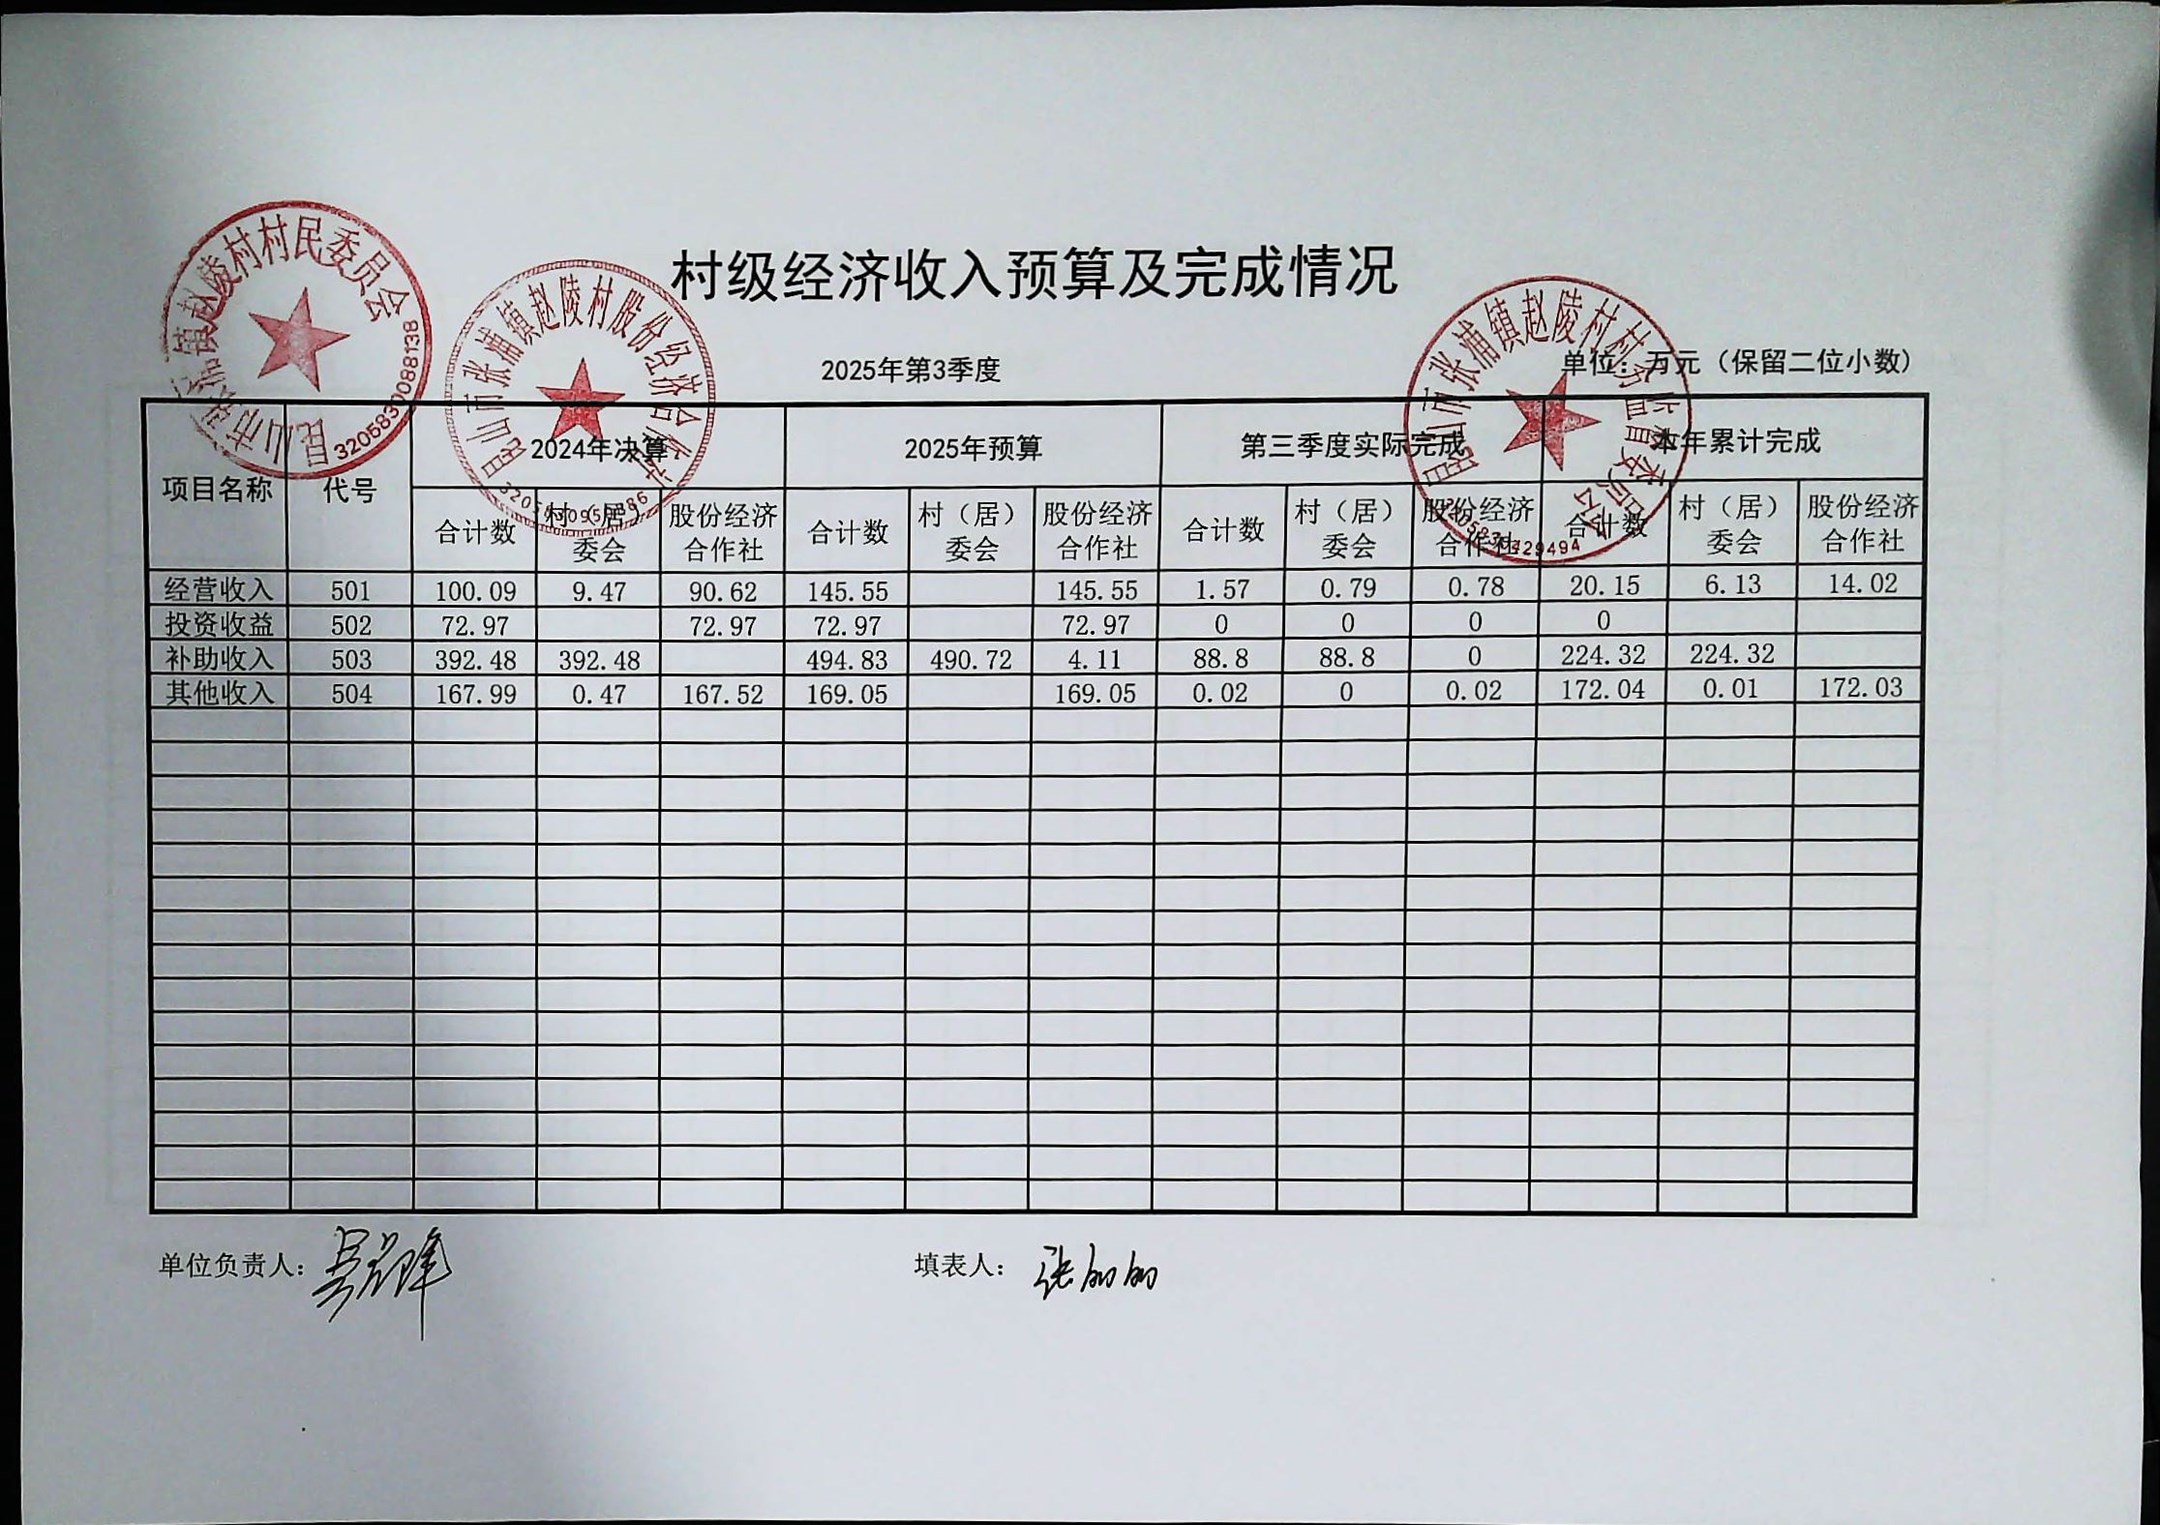 村级经济收入预算及完成情况
2025年第3季度
单位：万元（保留二位小数）
昆山市张浦镇赵陵村村民委员会
3205830088138
昆山市张浦镇赵陵村股份经济合作社
昆山市张浦镇赵陵村村务监督委员会
项目名称 代号 2024年决算 2025年预算 第三季度实际完成 本年累计完成
合计数 村（居）委会 股份经济合作社 合计数 村（居）委会 股份经济合作社 合计数 村（居）委会 股份经济合作社 合计数 村（居）委会 股份经济合作社
经营收入 501 100.09 9.47 90.62 145.55 145.55 1.57 0.79 0.78 20.15 6.13 14.02
投资收益 502 72.97 72.97 72.97 72.97 0 0 0 0
补助收入 503 392.48 392.48 494.83 490.72 4.11 88.8 88.8 0 224.32 224.32
其他收入 504 167.99 0.47 167.52 169.05 169.05 0.02 0 0.02 172.04 0.01 172.03
单位负责人：
填表人：张